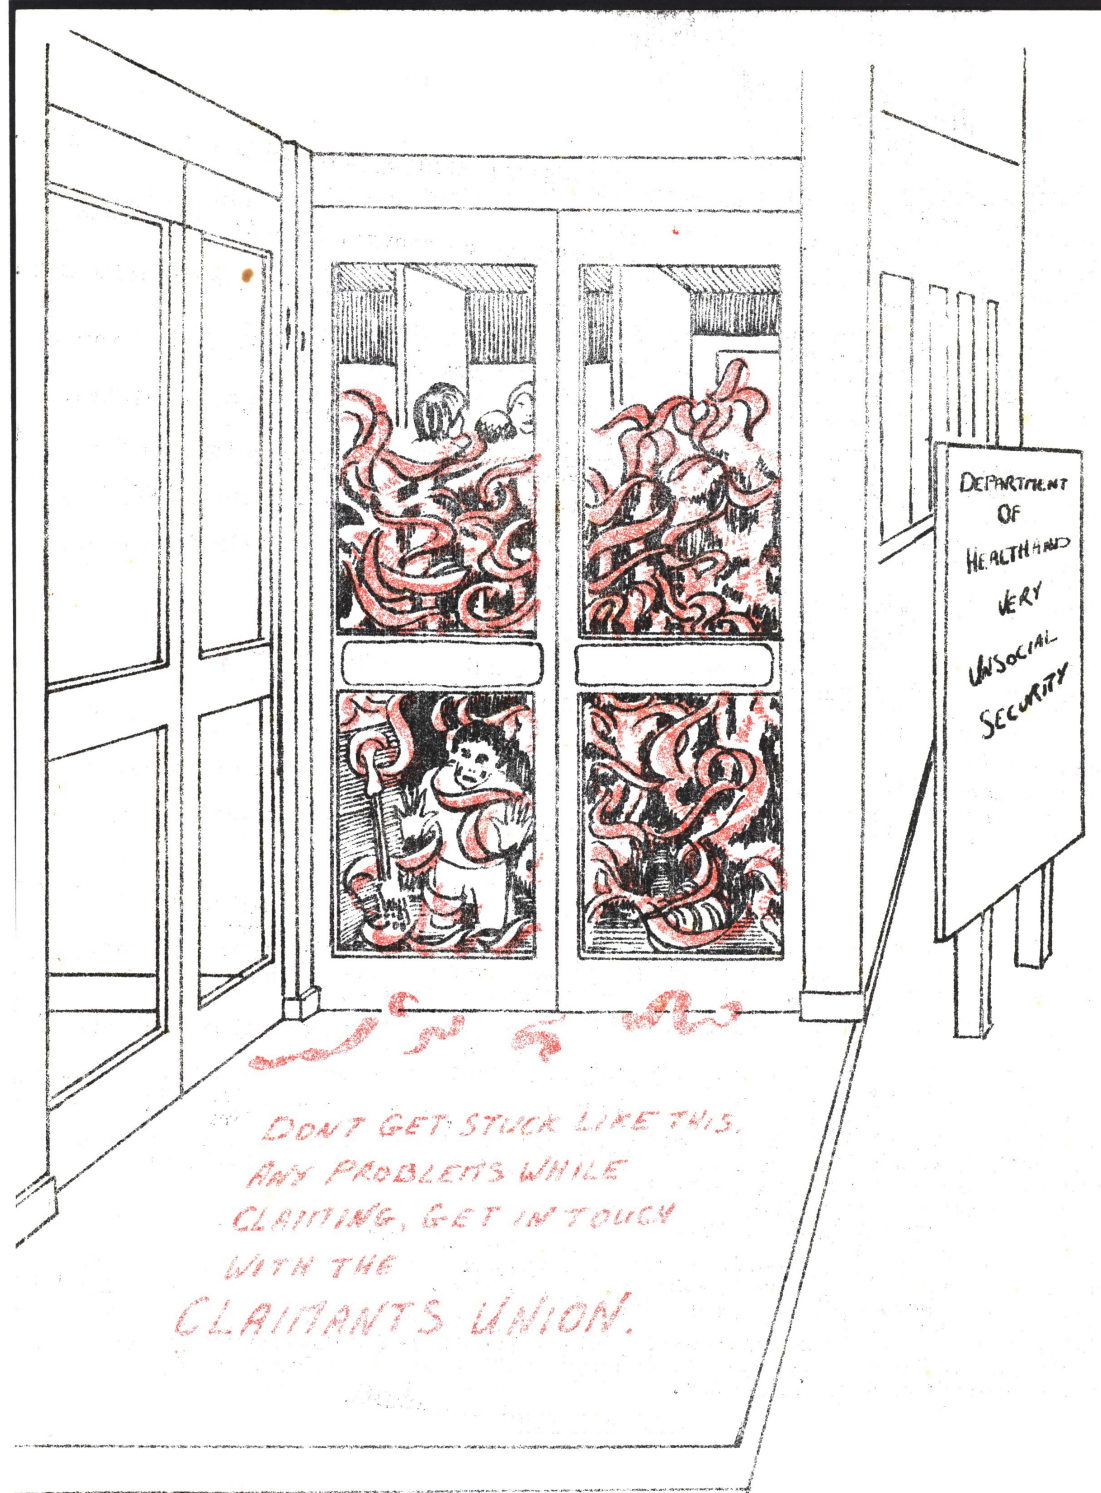 DEPARTMENT
OF
HEALTH AND
VERY
UNSOCIAL
SECURITY
DONT GET STUCK LIKE THIS.
ANY PROBLEMS WHILE
CLAIMING, GET IN TOUCH
WITH THE
CLAIMANTS UNION.